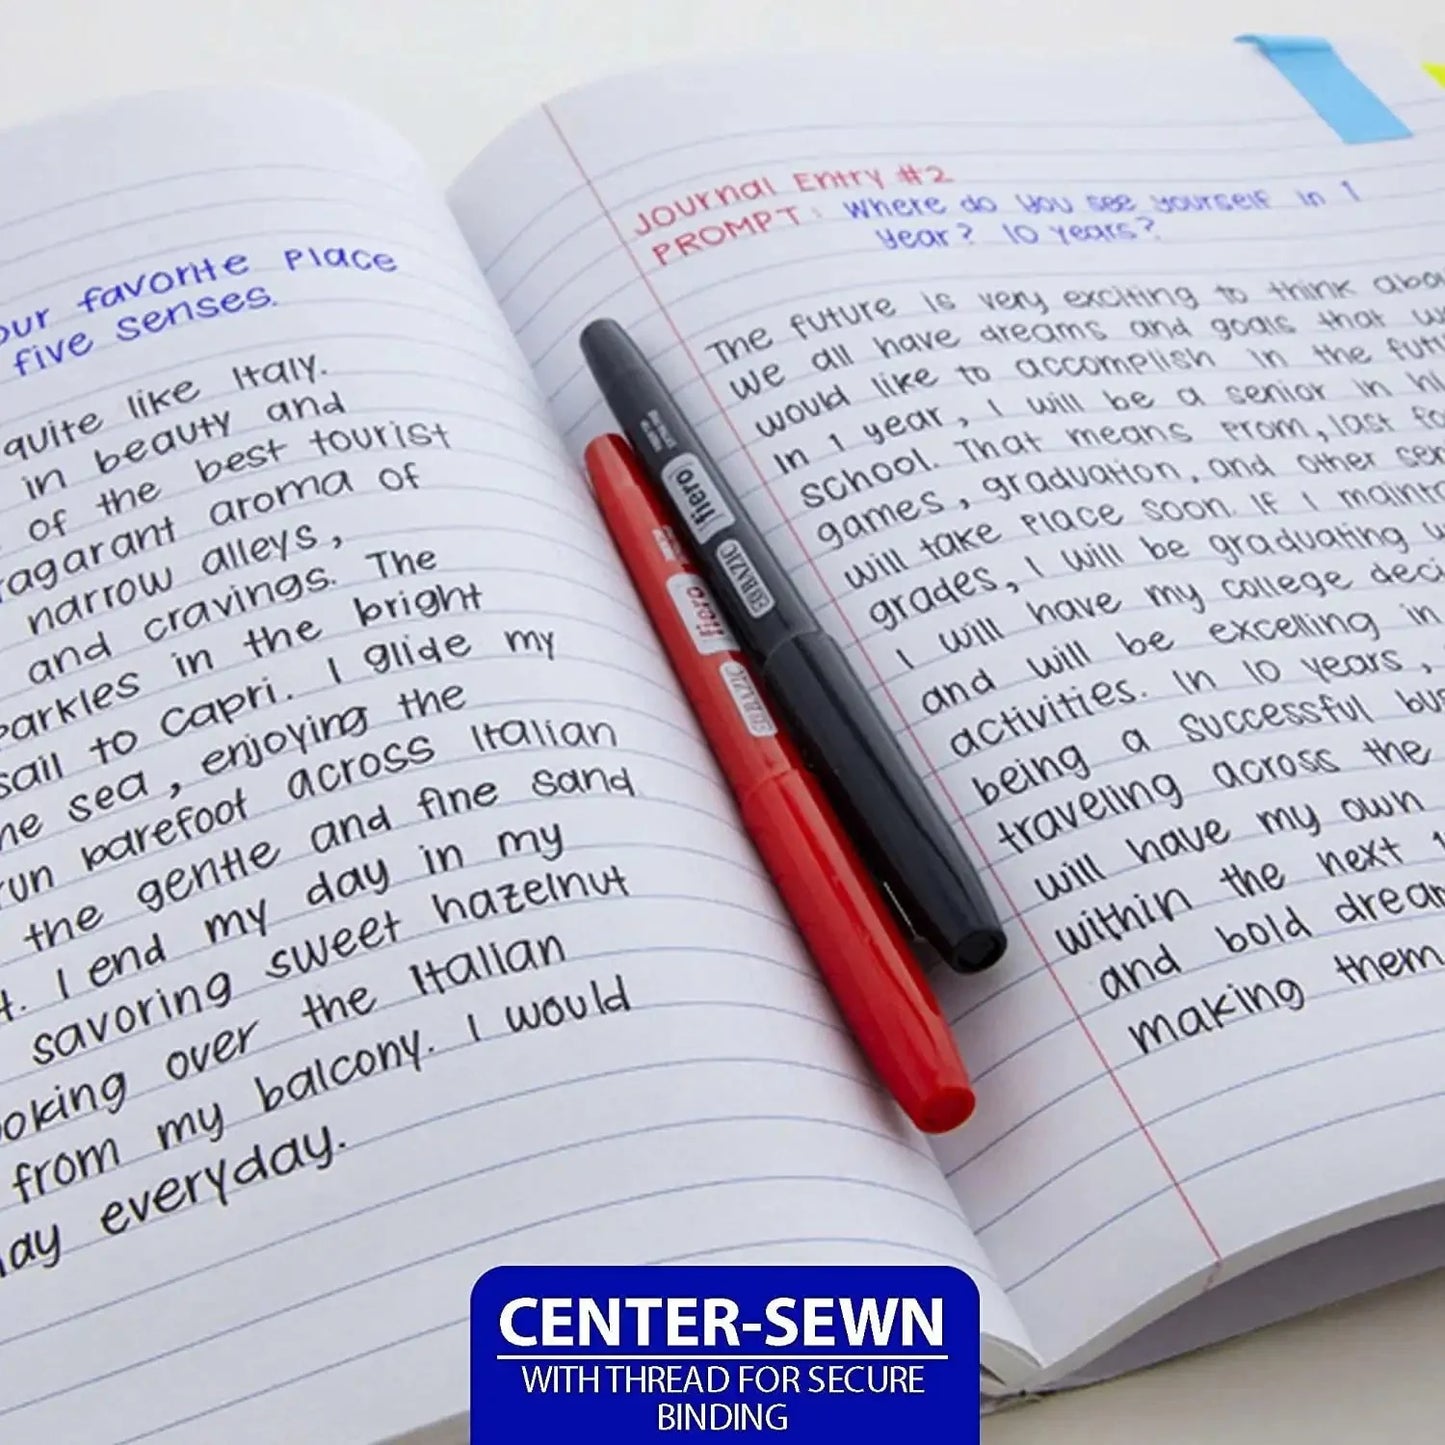 our favorite place
five senses.
quite like Italy.
in beauty and
of the best tourist
ragarant aroma of
narrow alleys,
and cravings. The
parkles in the bright
sail to Capri. I glide my
he sea, enjoying the
run barefoot across Italian
the gentle and fine sand
t. I end my day in my
savoring sweet hazelnut
ooking over the Italian
from my balcony. I would
ay everyday.
Journal Entry #2
PROMPT: Where do you see yourself in 1
year? 10 years?
The future is very exciting to think abo
we all have dreams and goals that w
would like to accomplish in the futu
In 1 year, I will be a senior in hi
school. That means prom, last fo
games, graduation, and other sen
will take place soon. If I mainta
grades, I will be graduating w
I will have my college deci
and will be excelling in
activities. In 10 years,
being a successful bus
traveling across the
will have my own
within the next 1
and bold dream
making them
fiero
BAZIC
fiero
BAZIC
CENTER-SEWN
WITH THREAD FOR SECURE
BINDING